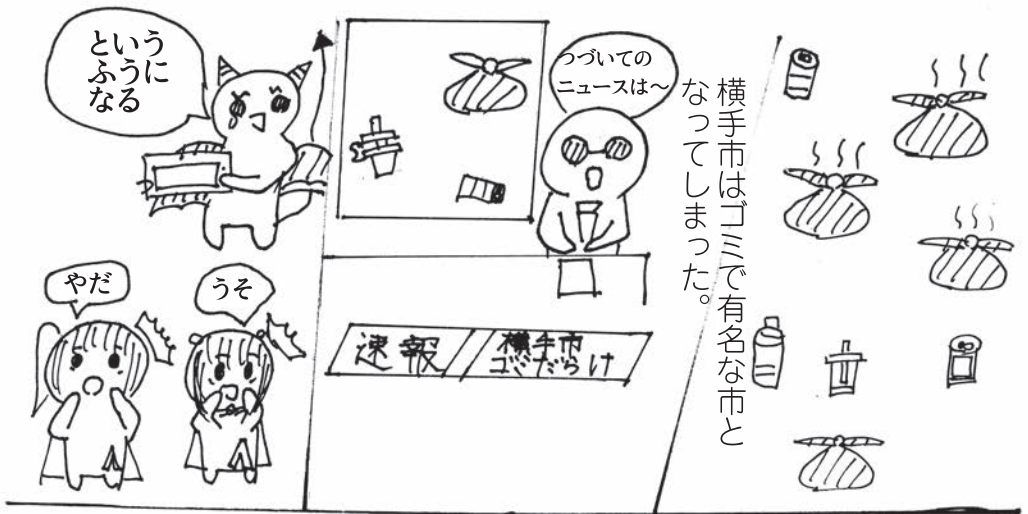 横手市はゴミで有名な市と
なってしまった。
つづいての
ニュースは～
速報
横手市
ゴミだらけ
という
ふうに
なる
うそ
やだ